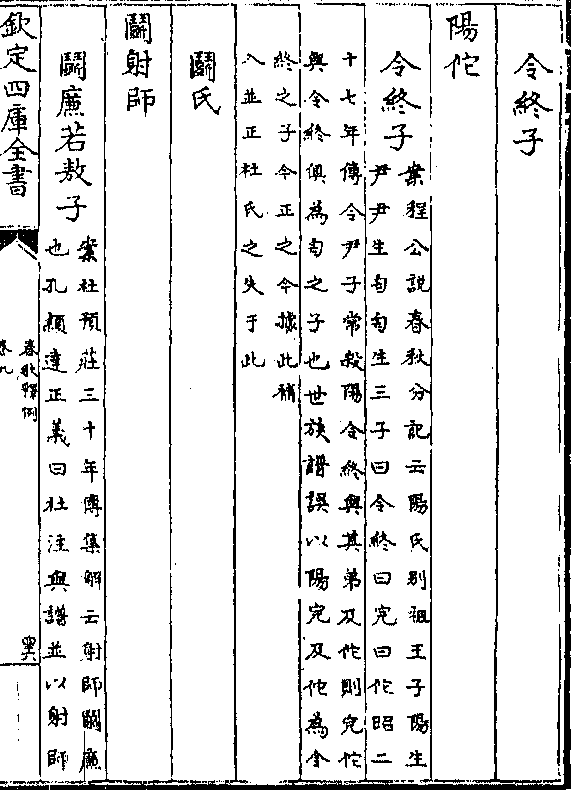 令終子
陽佗
令終子
案程公說春秋分記云陽氏别祖王子陽生
尹尹生匄匄生三子曰令終曰完曰佗昭二
十七年傳令尹子常殺陽令終與其弟及佗則完佗
與令終俱為匄之子也世族譜誤以陽完及佗為令
終之子今正之今據此補
入並正杜氏之失于此
鬭氏
鬭射師
鬭廉若敖子
案杜預莊三十年傳集解云射師鬭廉
也孔頴達正義曰杜注與譜並以射師
欽定四庫全書
春秋釋例
卷九